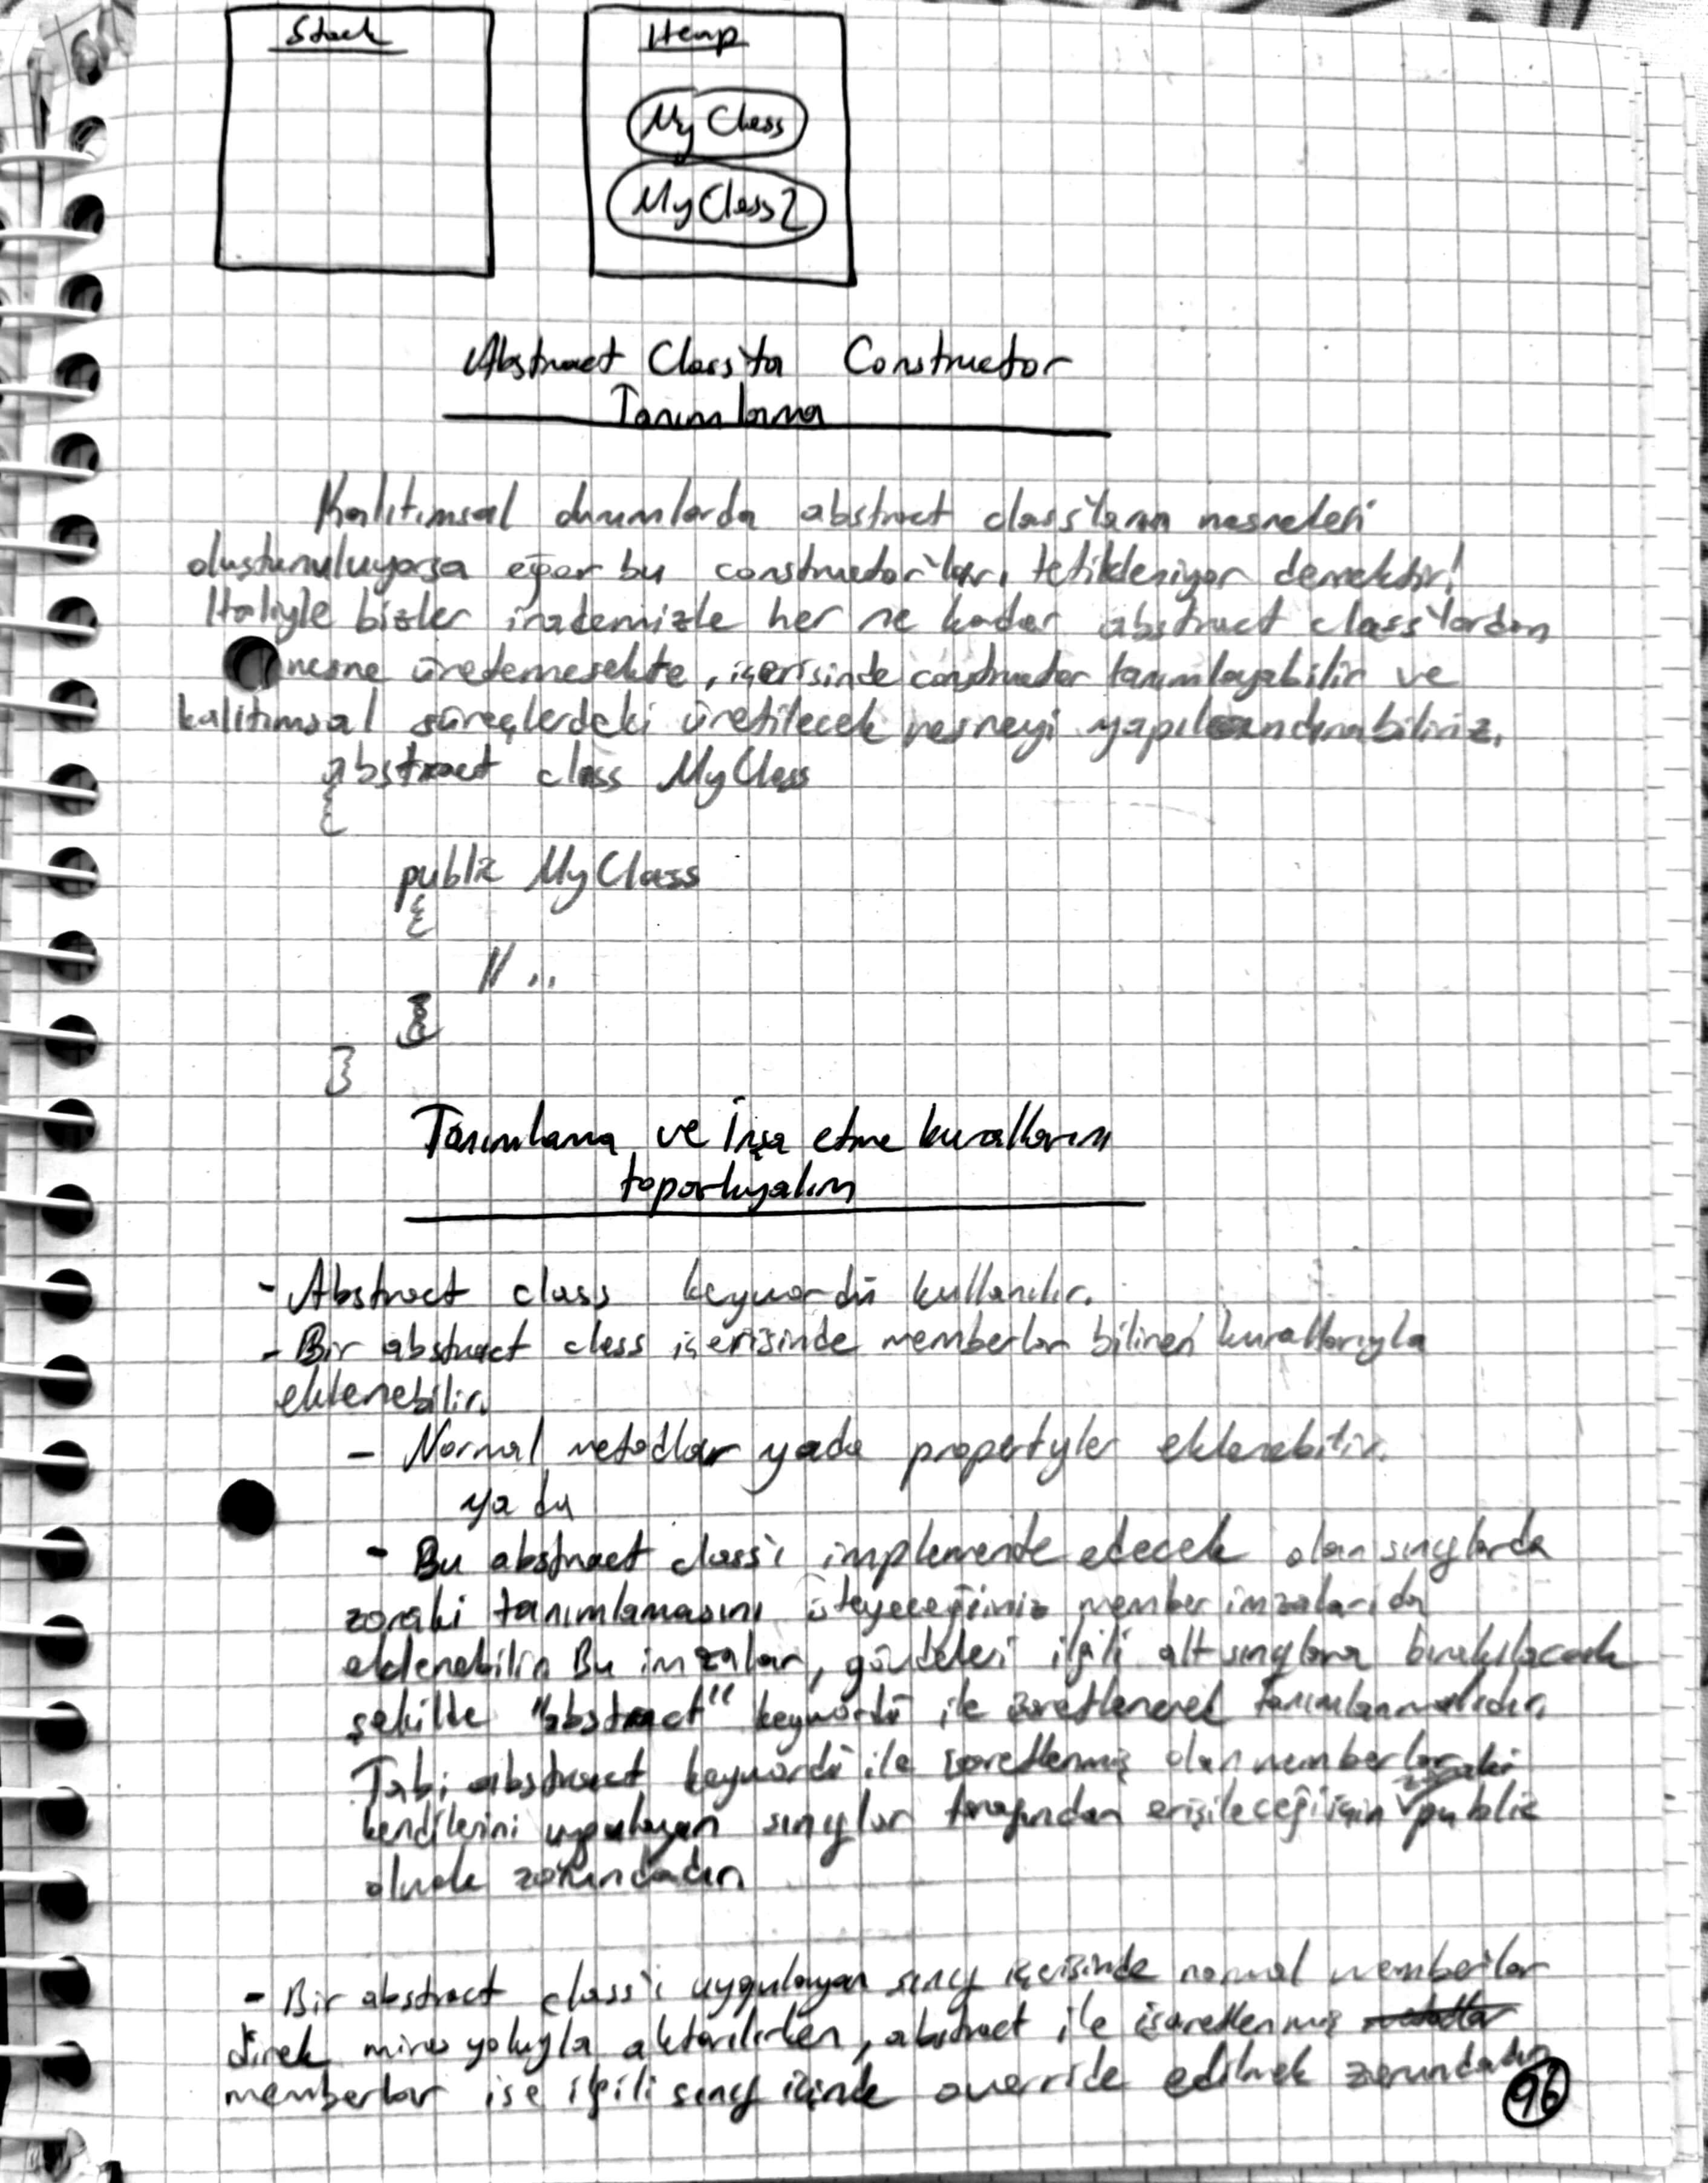 Stack
Heap
MyClass
MyClass2
Abstract Class'ta Constructor
Tanımlama
Kalıtımsal durumlarda abstract class'ların nesneleri
oluşturuluyorsa eğer bu constructor'ları tetikleniyor demektir!
Haliyle bizler irademizle her ne kadar abstract class'lardan
nesne üretemesekte, içerisinde constructor tanımlayabilir ve
kalıtımsal süreçlerdeki üretilecek nesneyi yapılandırabiliriz.
abstract class MyClass
{
public MyClass
{
// ..
}
}
Tanımlama ve İnşa etme kurallarını
toparlıyalım
- Abstract class keywordü kullanılır.
- Bir abstract class içerisinde memberlar bilinen kurallarıyla
eklenebilir.
- Normal metodlar yada propertyler eklenebilir.
ya da
- Bu abstract class'ı implemente edecek olan sınıflarda
zoraki tanımlamasını isteyeceğimiz member imzaları da
eklenebilir. Bu imzalar, gövdeleri ilgili alt sınıflara bırakılacak
şekilde "abstract" keywordü ile işaretlenerek tanımlanmalıdır.
Tabi abstract keywordü ile işaretlenmiş olan memberlar
kendilerini uygulayan sınıflar tarafından erişileceği için zoraki public
olmak zorundadır.
- Bir abstract class'ı uygulayan sınıf içerisinde normal memberlar
direk miras yoluyla aktarılırken, abstract ile işaretlenmiş
memberlar ise ilgili sınıf içinde override edilmek zorundadır.
96